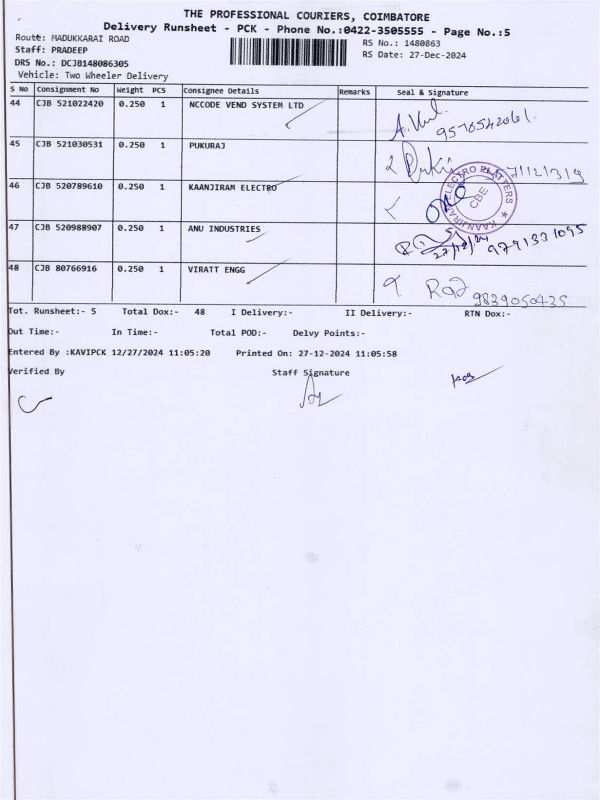 THE PROFESSIONAL COURIERS, COIMBATORE
Delivery Runsheet - PCK - Phone No.:0422-3505555 - Page No.:5
Route: MADUKKARAI ROAD
Staff: PRADEEP
DRS No.: DCJB148086305
Vehicle: Two Wheeler Delivery
RS No.: 1480863
RS Date: 27-Dec-2024
S No Consignment No Weight PCS Consignee Details Remarks Seal & Signature
44 CJB 521022420 0.250 1 NCCODE VEND SYSTEM LTD
9570542061.
45 CJB 521030531 0.250 1 PUKURAJ
46 CJB 520789610 0.250 1 KAANJIRAM ELECTRO
KAANJIRAM ELECTRO PLATTERS
CBE
47 CJB 520988907 0.250 1 ANU INDUSTRIES
27/12/24 9791331095
48 CJB 80766916 0.250 1 VIRATT ENGG
9839050435
Tot. Runsheet:- 5 Total Dox:- 48 I Delivery:- II Delivery:- RTN Dox:-
Out Time:- In Time:- Total POD:- Delvy Points:-
Entered By :KAVIPCK 12/27/2024 11:05:20 Printed On: 27-12-2024 11:05:58
Verified By Staff Signature